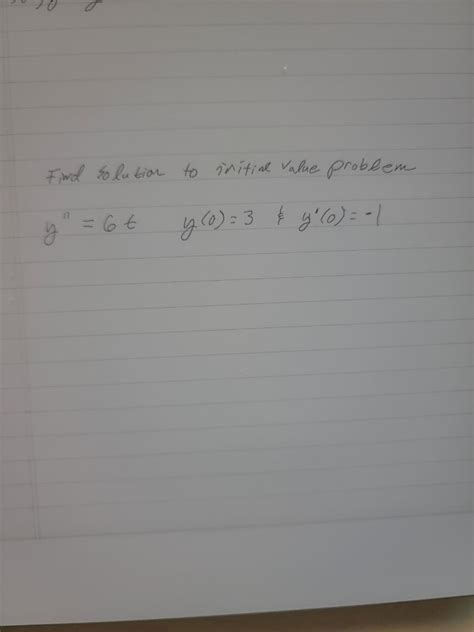 Find solution to initial value problem
y" = 6t y(0) = 3 & y'(0) = -1